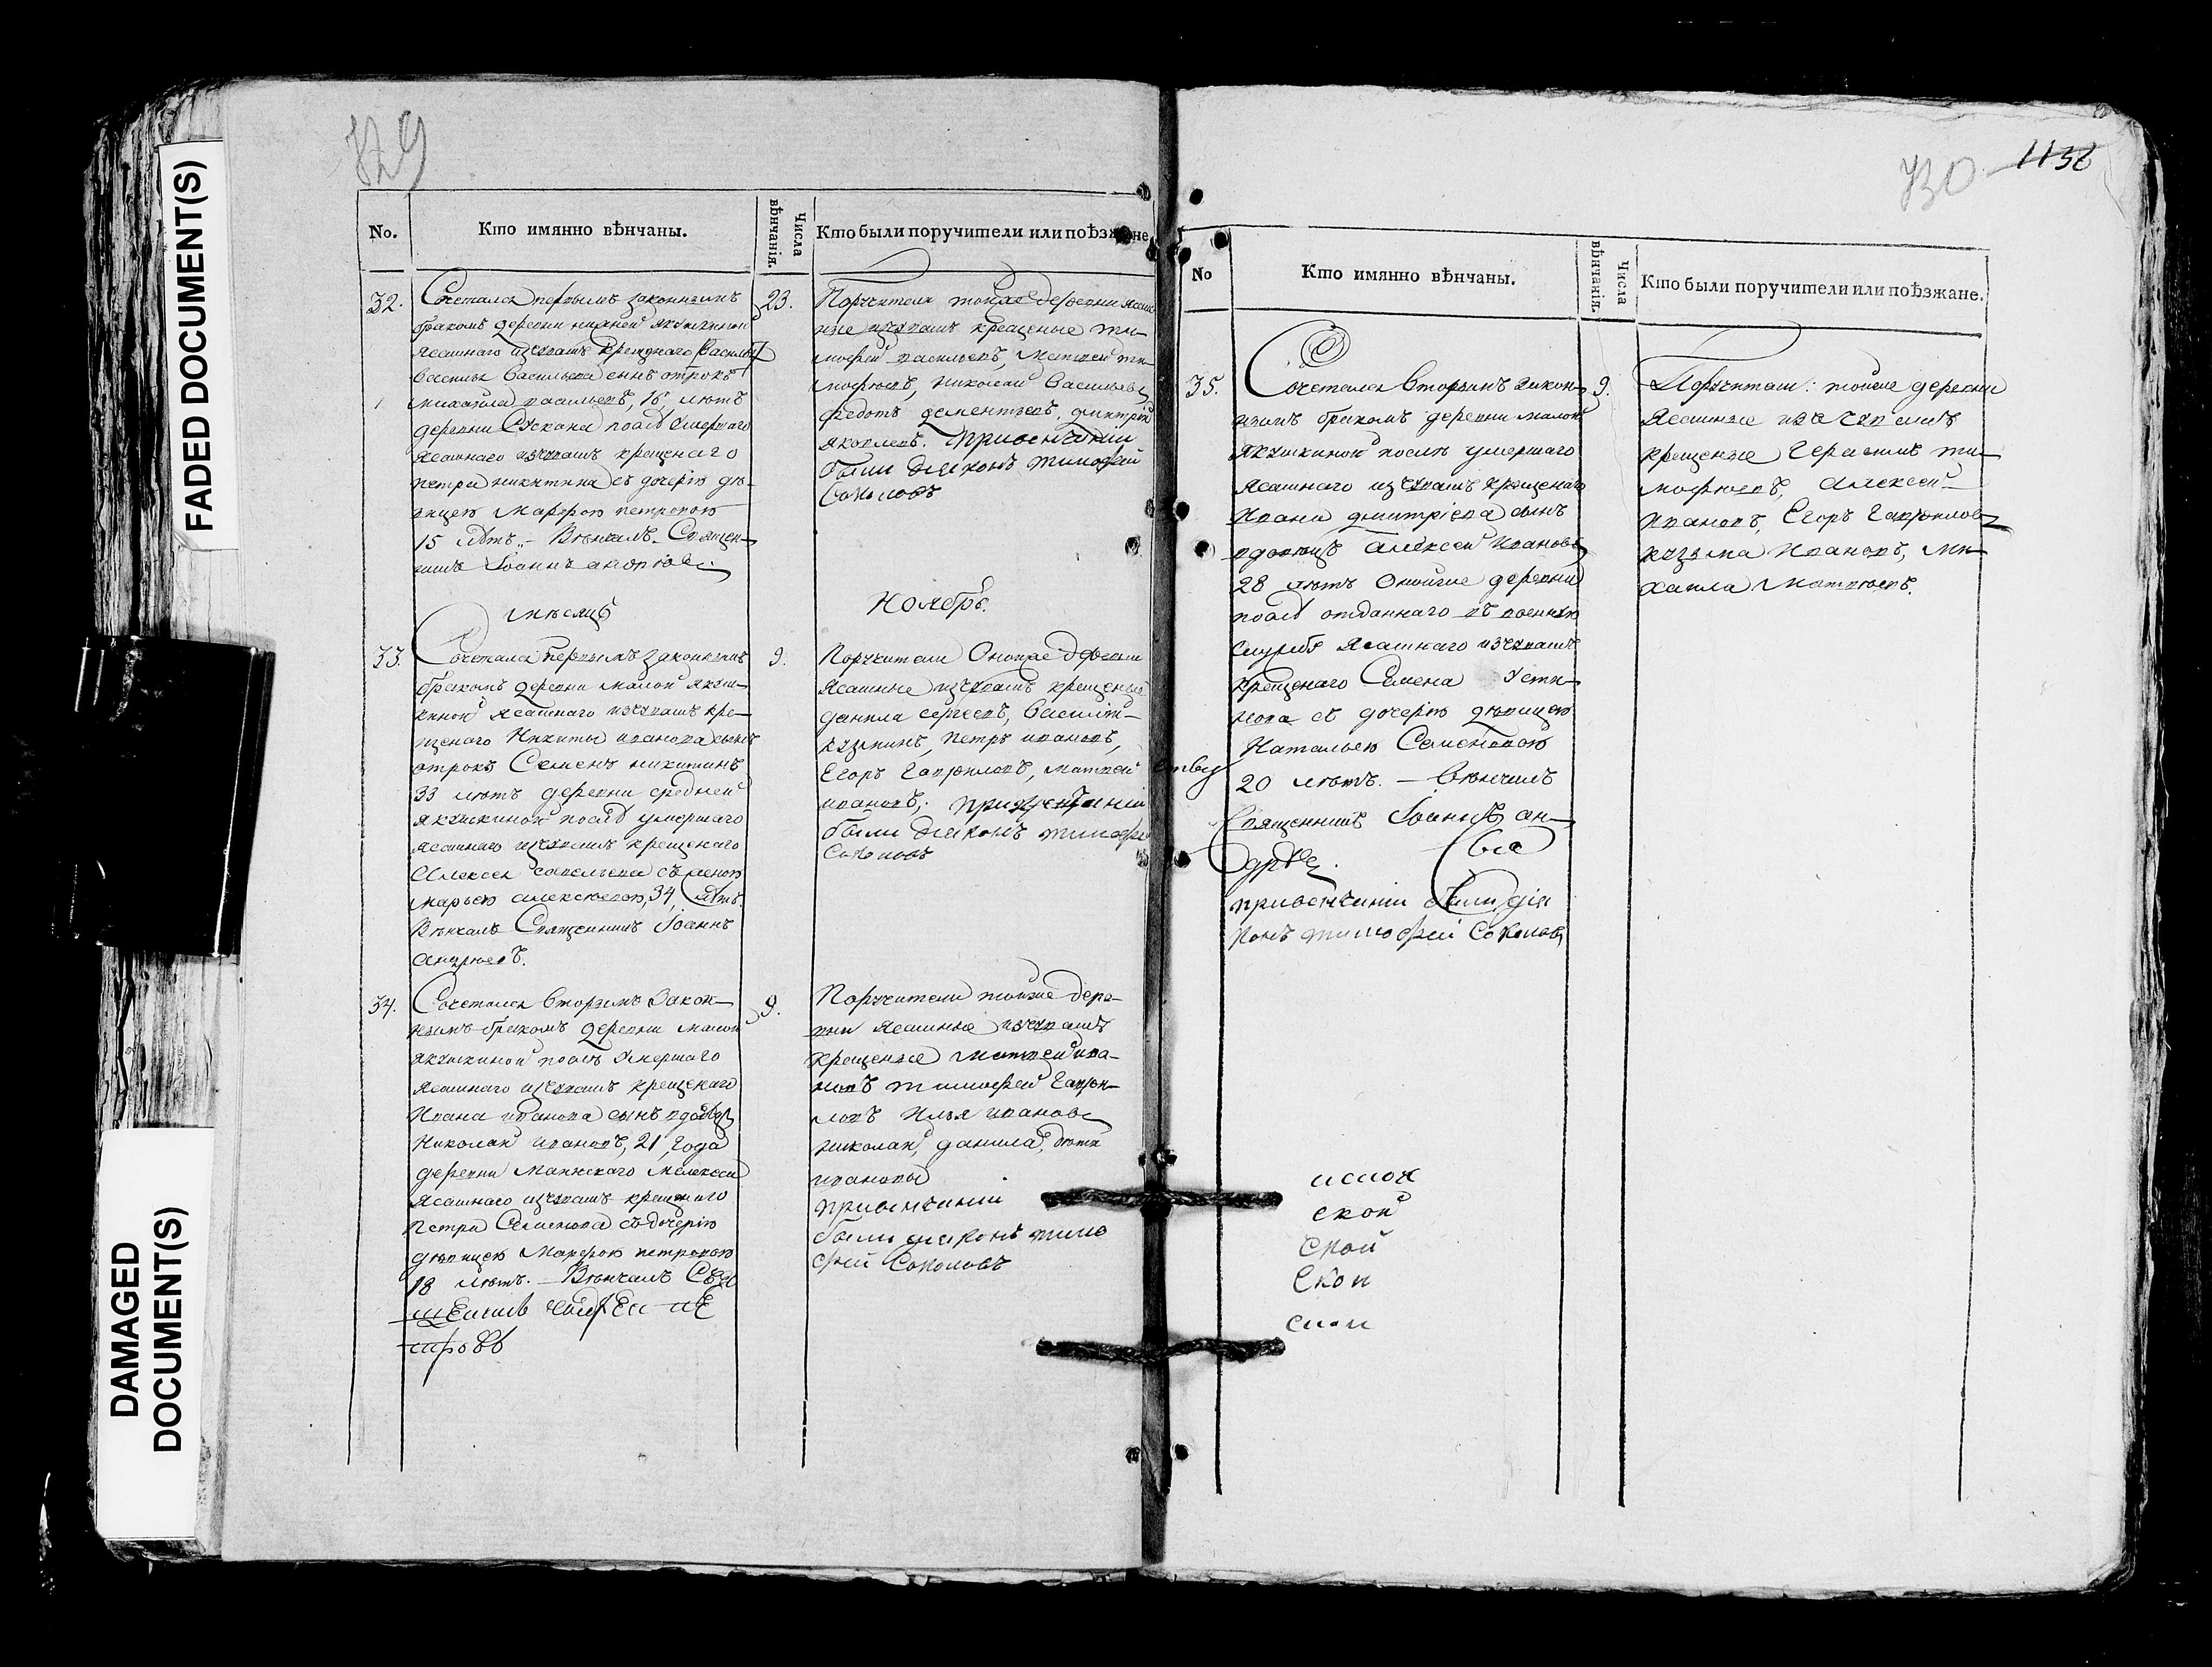 FADED DOCUMENT(S)
DAMAGED DOCUMENT(S)
729
No.
Кто имянно вѣнчаны.
Числа вѣнчанія.
Кто были поручители или поѣзжане
32.
Сочетался первымъ законнымъ
бракомъ деревни нижней якушкиной
ясашнаго изчувашъ крещенаго
Василья Васильева сынъ отрокъ
михайла васильевъ, 16 лѣтъ
деревни Ускана послѣ умершаго
ясашнаго изчувашъ крещенаго
петра никитина съ дочерію дѣ-
вицею Марфою петровою
15 лѣтъ. - Вѣнчалъ Священ-
никъ Іоаннъ андрюевъ.
23.
Поручители тойже деревни ясаш
ные изчувашъ крещеные ти-
мофей васильевъ, Матвей ти-
мофѣевъ, николай Васильевъ
федотъ дементьевъ, дмитрей
яковлевъ. привенчаніи
были дияконъ тимофей
Соколовъ
мѣсяцъ
Ноябрь.
33.
Сочетался первымъ законнымъ
бракомъ деревни малой якуш-
киной ясашнаго изчувашъ кре-
щенаго Никиты иванова сынъ
отрокъ Семенъ никитинъ
33 лѣтъ деревни средней
якушкиной послѣ умершаго
ясашнаго изчувашъ крещенаго
Алексея савельева съ женою
марьею алексѣевою, 34, лѣтъ.
Вѣнчалъ Священникъ Іоаннъ
андрюевъ.
9.
Поручители Оноиже деревни
Ясашные изчувашъ крещеные
данила сергеевъ, Василій
кузминъ, петръ ивановъ,
Егоръ Гаврюиловъ, матвей
ивановъ; привенчаніи
были дияконъ тимофей
Соколовъ
34.
Сочетался вторымъ закон-
нымъ бракомъ деревни малой
якушкиной послѣ умершаго
ясашнаго изчувашъ крещенаго
Ивана иванова сынъ вдовецъ
Николай ивановъ, 21, года
деревни Мелекеса
ясашнаго изчувашъ крещенаго
Петра Семенова съ дочерію
дѣвицею Марфою петровою
18 лѣтъ. - Вѣнчалъ Свя
щеникъ андрей пе
тровъ
9.
Поручители тойже дере-
вни ясашные изчувашъ
крещеные матвей ива-
новъ тимофей Гаврюи-
ловъ Илья ивановъ
николай, данила, дѣти
ивановы
привенчаніи
были дияконъ тимо
фей Соколовъ
730 1138
No
Кто имянно вѣнчаны.
Числа вѣнчанія.
Кто были поручители или поѣзжане.
35.
Сочетался вторымъ закон-
нымъ бракомъ деревни малой
якушкиной послѣ умершаго
ясашнаго изчувашъ крещенаго
Ивана дмитріева сынъ
вдовецъ алексей ивановъ
28 лѣтъ Оноиже деревни
послѣ отданнаго въ военную
службу ясашнаго изчувашъ
крещенаго Семена Усти-
нова съ дочерію дѣвицею
Натальею Семеновою
20 лѣтъ. - вѣнчалъ
Священникъ Іоаннъ ан-
дрѣе
привенчаніи были дія
конъ тимофей Соколовъ
9.
Поручители: тойже деревни
Ясашные изъ чувашъ
крещеные Герасимъ ти-
мофѣевъ, алексей
ивановъ, Егоръ Гаврюиловъ
кузьма Ивановъ, ми-
хаила Матвѣевъ.
ской
ской